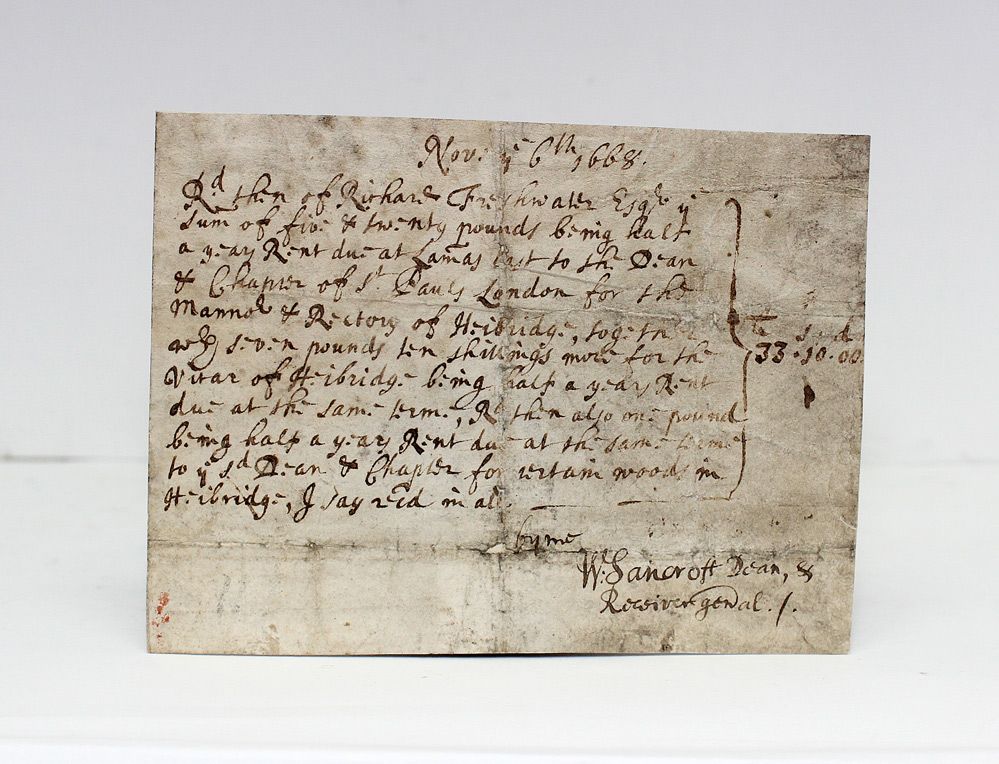 Nov. yᵉ 6th 1668.
Rd then of Richard Freshwater Esqr yᵉ
sum of five & twenty pounds being half
a year Rent due at Lamas last to the Dean
& Chapter of St Pauls London for the
Mannoʳ & Rectory of Heibridge, together
wth seven pounds ten shillings more for the
Vicar of Heibridge being half a years Rent
due at the same terme, Rd then also one pound
being half a years Rent due at the same terme
to yᵉ sd Dean & Chapter for certain woods in
Heibridge, J say recd in all.
l s d
33.10.00
by me
W. Sancroft Dean, &
Receiver genal./.